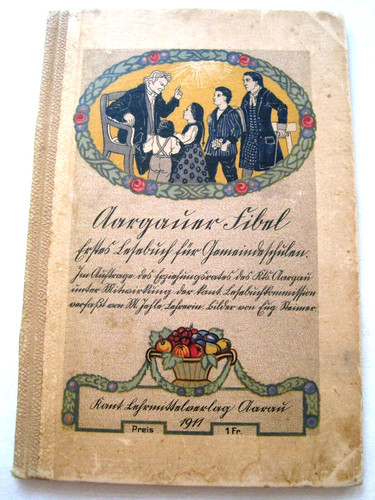 Aargauer Fibel
Erstes Lesebuch für Gemeindeschulen.
Im Auftrage des Erziehungsrates des Kts. Aargau
unter Mitwirkung der kant. Lesebuchkommission
verfaßt von M. Lehrerin. Bilder von Eug. Steimer.
Kant. Lehrmittelverlag Aarau
1911
Preis 1 Fr.